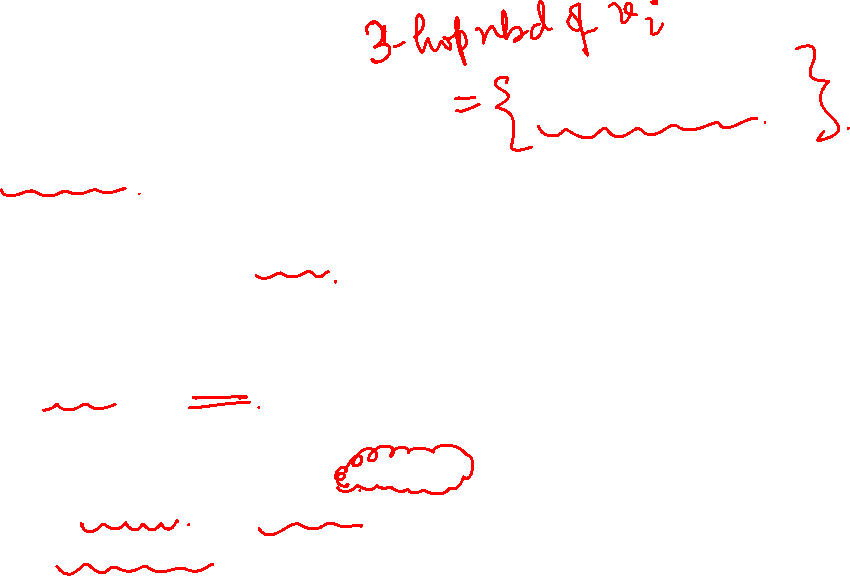 3-hop nbd of v_i
= { }.